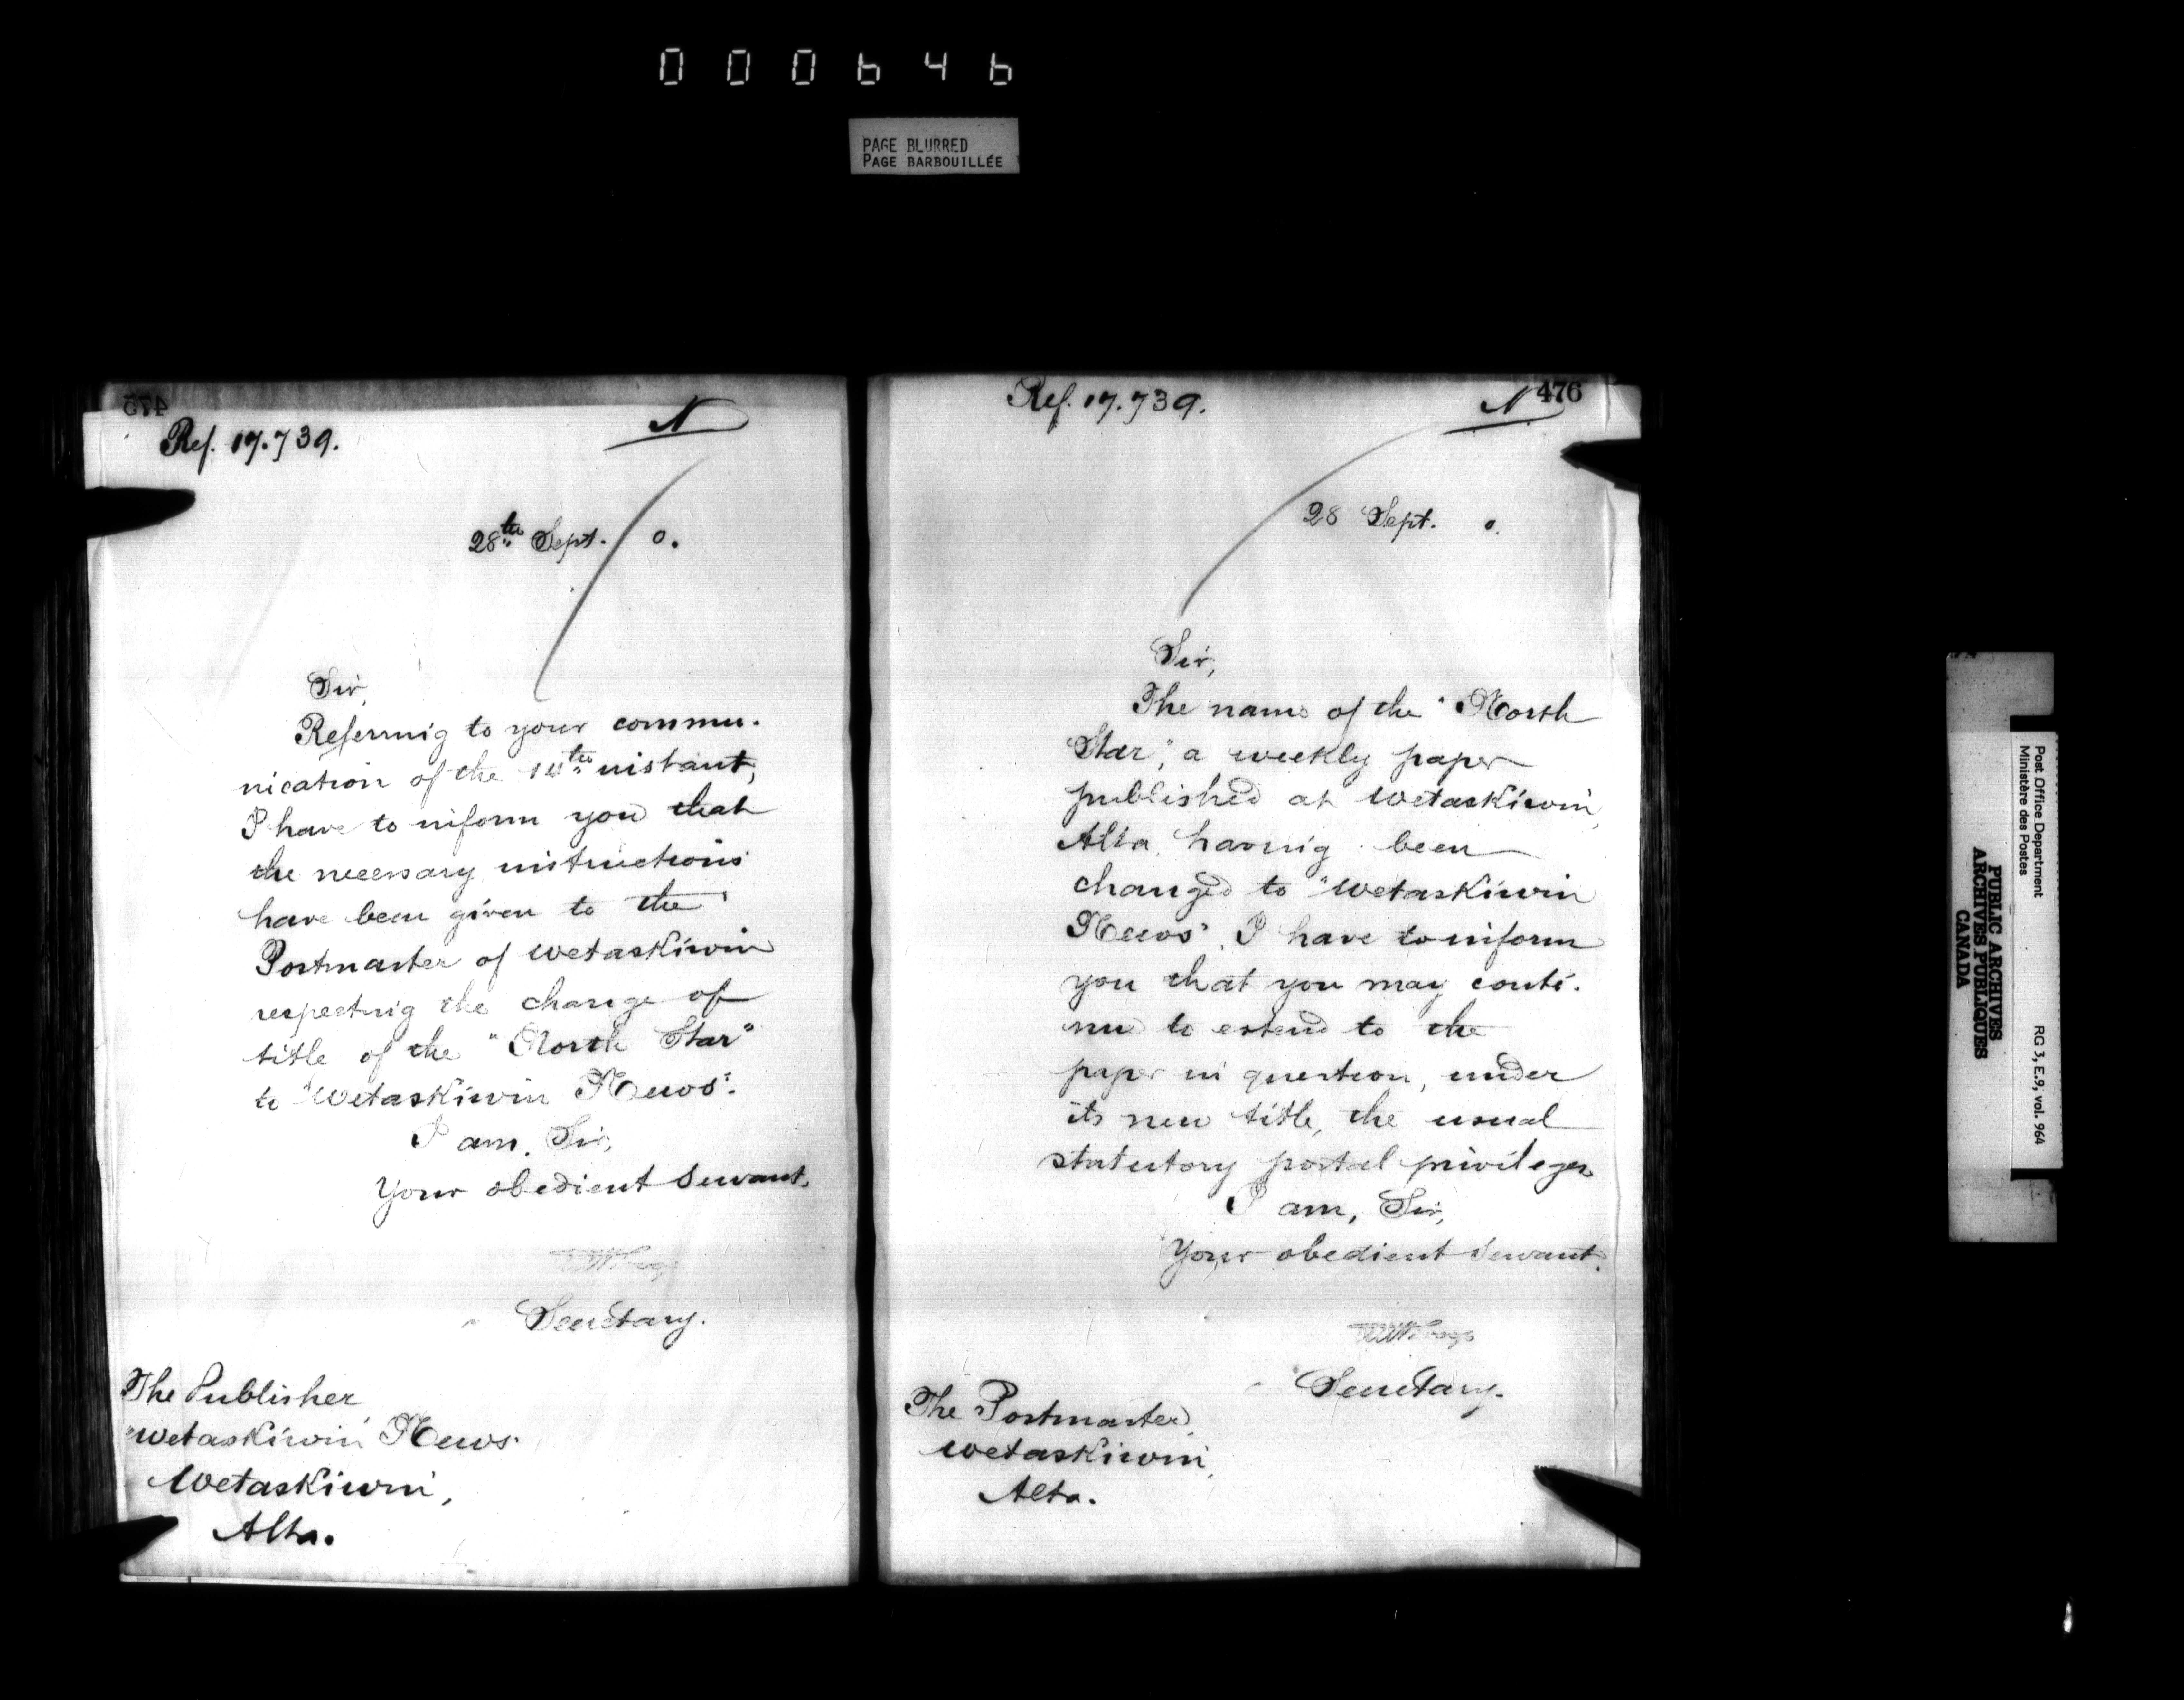 000646
PAGE BLURRED
PAGE BARBOUILLÉE
475
Ref. 17.739.
N
28th Sept. 0.
Sir,
Referring to your commu-
nication of the instant,
I have to inform you that
the necessary instructions
have been given to the
Postmaster of Wetaskiwin
respecting the change of
title of the "North Star"
to "Wetaskiwin News".
I am, Sir,
Your obedient Servant,
Secretary.
The Publisher,
"Wetaskiwin News"
Wetaskiwin,
Alta.
476
Ref. 17.739.
N
28 Sept. 0.
Sir,
The name of the "North
Star", a weekly paper
published at Wetaskiwin,
Alta, having been
changed to "Wetaskiwin
News", I have to inform
you that you may conti-
nue to extend to the
paper in question, under
its new title, the usual
statutory postal privileges
I am, Sir,
Your obedient Servant.
Secretary.
The Postmaster,
Wetaskiwin,
Alta.
Post Office Department
Ministère des Postes
RG 3, E.9, vol. 964
PUBLIC ARCHIVES
ARCHIVES PUBLIQUES
CANADA